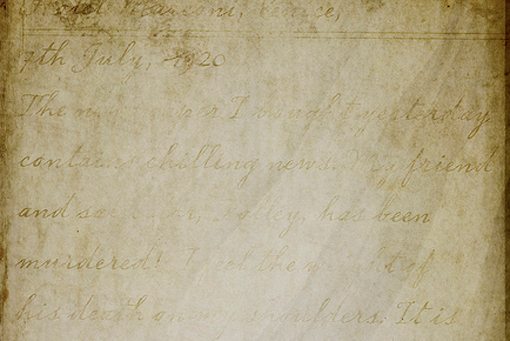 Hotel Marconi, Venice,
7th July, 1920
The newspaper I bought yesterday
contains chilling news. My friend
and saviour, has been
murdered! I feel the weight of
his death on my shoulders. It is